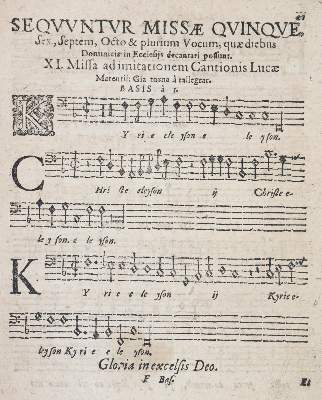 SEQVVNTVR MISSÆ QVINQVE,
Sex, Septem, Octo & plurium Vocum, quæ diebus
Dominicis in Ecclesijs decantari possunt.
XI. Missa ad imitationem Cantionis Lucæ
Marentii: Gia torna à rallegrar.
BASIS à 5.
K Y ri e ele yson e le yson.
C Hri ste eleyson ij Christe e-
le yson. e le yson.
K Y ri e e le yson ij Kyrie e-
leyson Ky ri e e le yson.
Gloria in excelsis Deo.
F Bas. Et